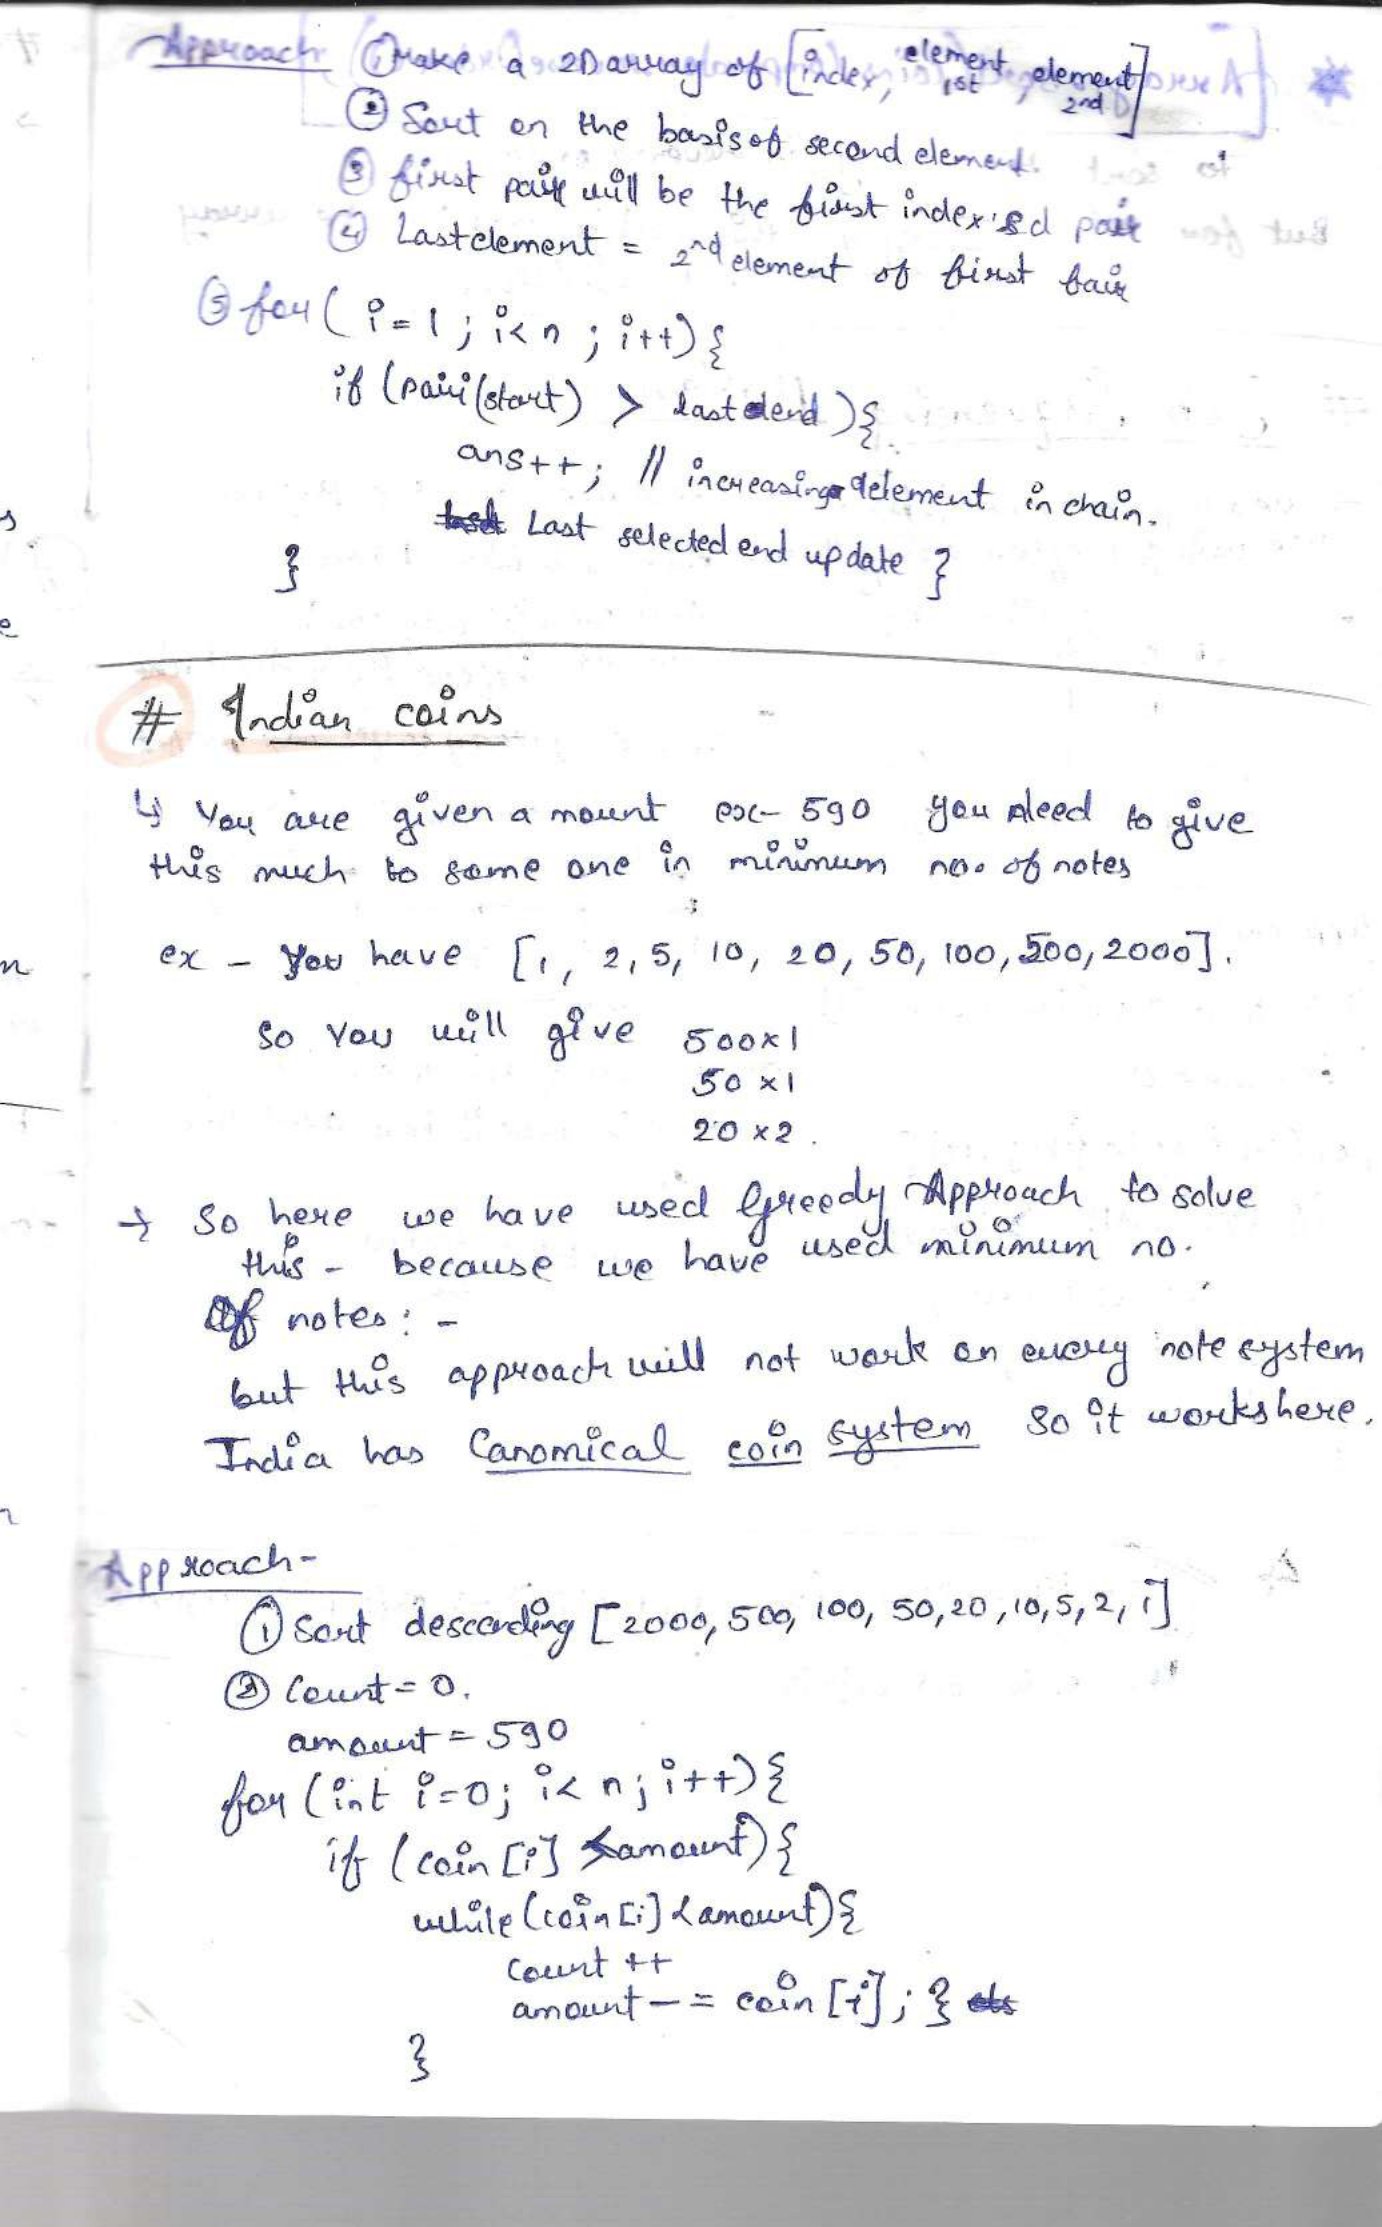 Approach ① Make a 2D array of [index, element 1st, element 2nd]
② Sort on the basis of second element.
③ first pair will be the first index'ed pair
④ Last element = 2nd element of first pair
⑤ for( i=1; i<n; i++){
if (pair(start) > last end){
ans++; // increasing element in chain.
Last selected end update }
}
# Indian coins
↳ You are given amount ex- 590 you need to give
this much to some one in minimum no. of notes
ex - You have [1, 2, 5, 10, 20, 50, 100, 500, 2000].
so You will give 500x1
50 x1
20 x2.
→ So here we have used Greedy Approach to solve
this - because we have used minimum no.
Of notes: -
but this approach will not work on every note system
India has Canomical coin system So it works here.
Approach-
① Sort descending [2000, 500, 100, 50, 20, 10, 5, 2, 1]
② Count = 0.
amount = 590
for (int i=0; i< n; i++){
if (coin [i] <amount){
while(coin[i] <amount){
count ++
amount -= coin [i]; }
}